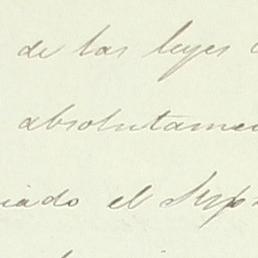 de las leyes
absolutame
iado el Sup